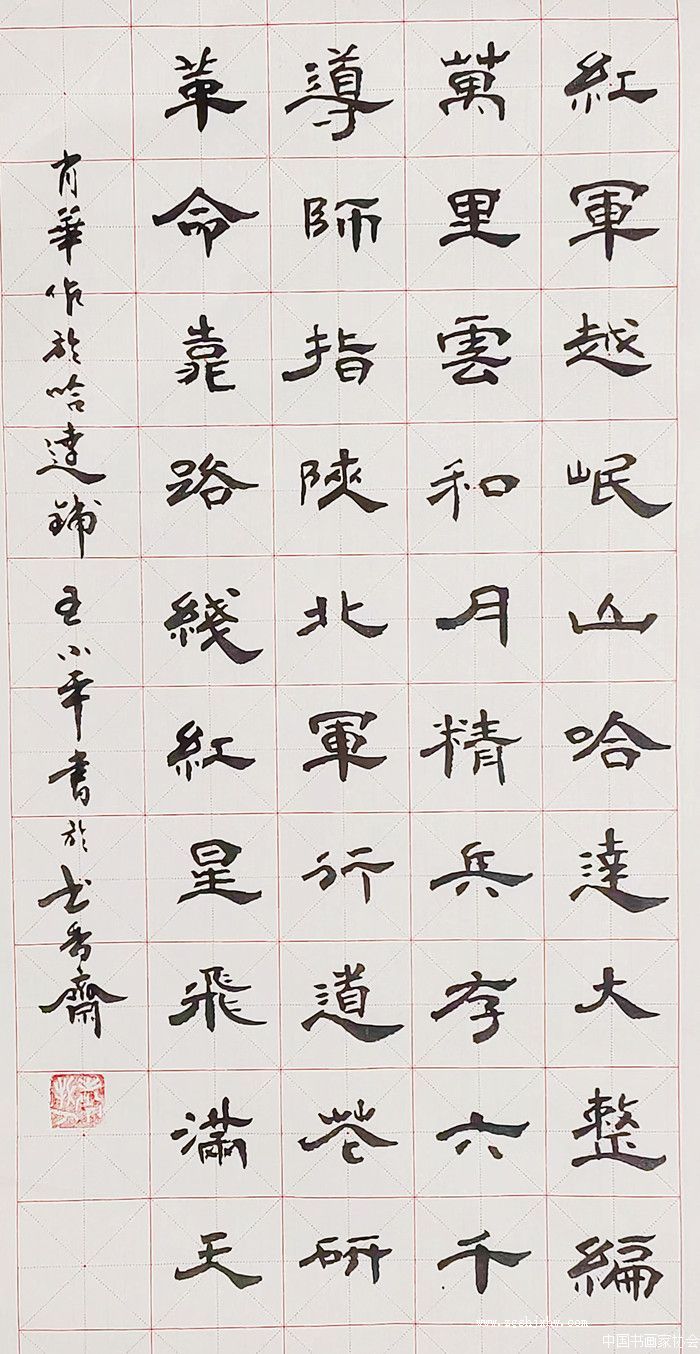 紅軍越岷山哈達大整編
萬里雲和月精兵存六千
導師指陝北軍行道花研
革命靠路綫紅星飛滿天
肖華作於哈達鋪 王小書於书香齋
中国书画家协会